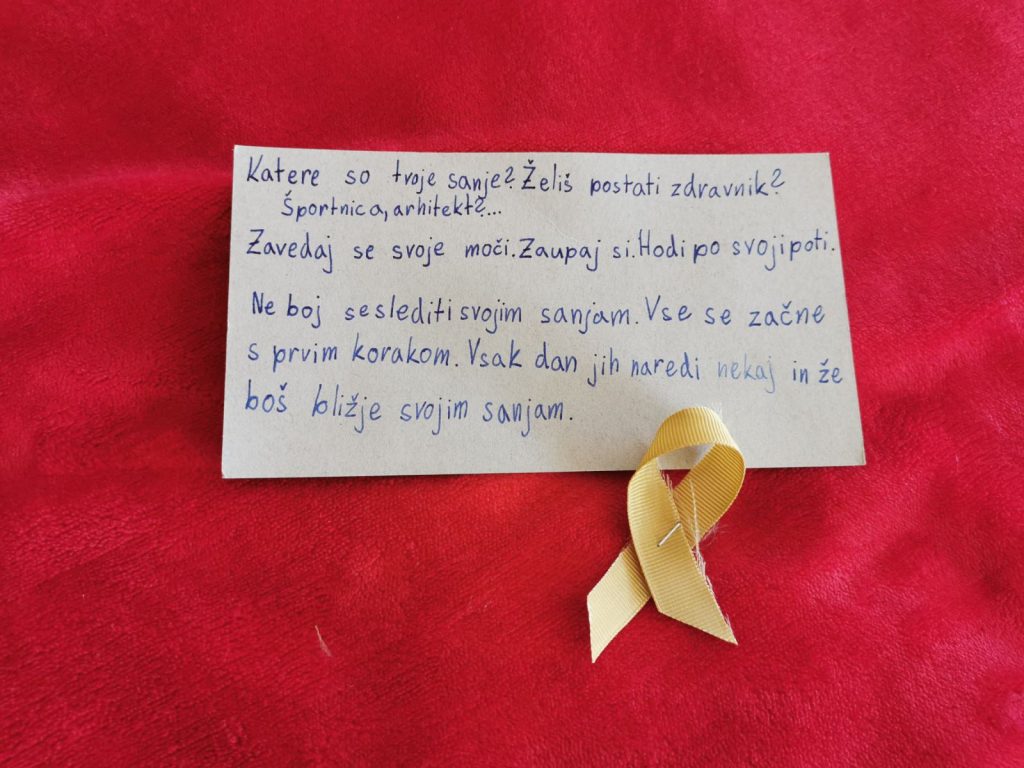 Katere so tvoje sanje? Želiš postati zdravnik?
Športnica, arhitekt?...
Zavedaj se svoje moči. Zaupaj si. Hodi po svoji poti.
Ne boj se slediti svojim sanjam. Vse se začne
s prvim korakom. Vsak dan jih naredi nekaj in že
boš bližje svojim sanjam.